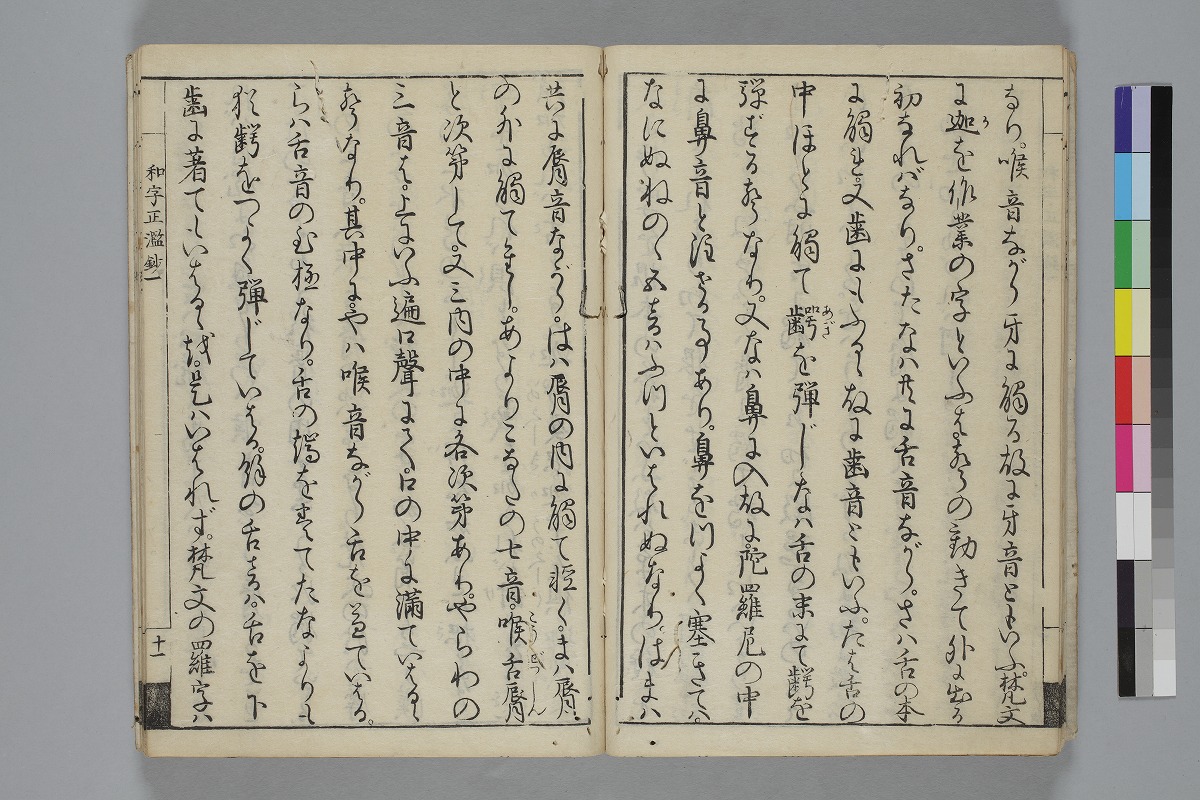 なり。喉音ながら牙に觸る故に牙音ともいふ。梵文
に迦を作業の字といふは聲の動きて外に出る
初なればなり。さたなは共に舌音ながら。さは舌の本
に觸れ。又歯にもふる。故に歯音ともいふ。たは舌の
中ほどに觸て齶を弾じ。なは舌の末にて齶を
弾ずる聲なり。又なは鼻に入故に。陀羅尼の中
に鼻音と注せる事あり。鼻をつよく塞ぎては。
なにぬねのゝ五音はふつといはれぬなり。はまは
共に脣音ながら。はは脣の内に觸て軽く。まは脣
の外に觸て重し。あよりこなたの七音。喉舌脣
と次第して。又三内の中に各次第あり。やらわの
三音は。上にいふ遍口聲にて。口の中に満ていはるゝ
聲なり。其中に。やは喉音ながら舌を兼ていはる。
らは舌音の至極なり。舌の端をすてたなよりも
猶齶をつよく弾じていはる。餘の舌音は。舌を下
歯に著てもいはるゝを。是はいはれず。梵文の羅字は
和字正濫鈔一
十一